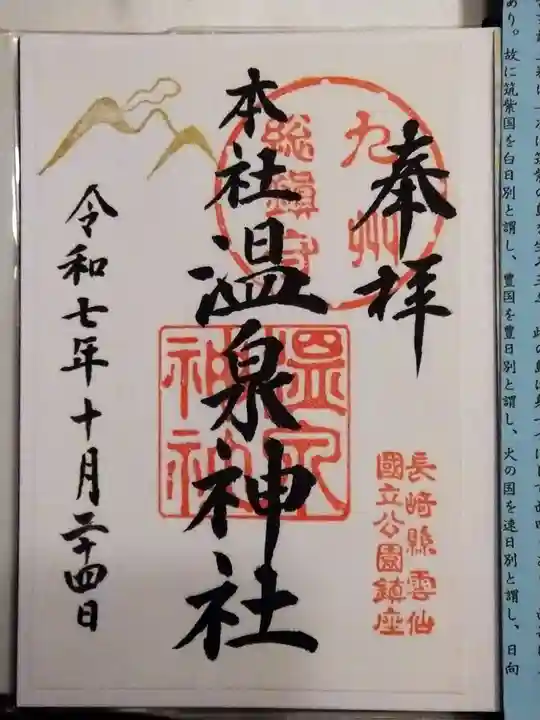 奉拝
九州
総鎮守
本社温泉神社
温泉
神社
令和七年十月二十四日
長崎縣雲仙
國立公園鎮座
あり。故に筑紫国を白日別と謂し、豊国を豊日別と謂し、火の国を速日別と謂し、日向